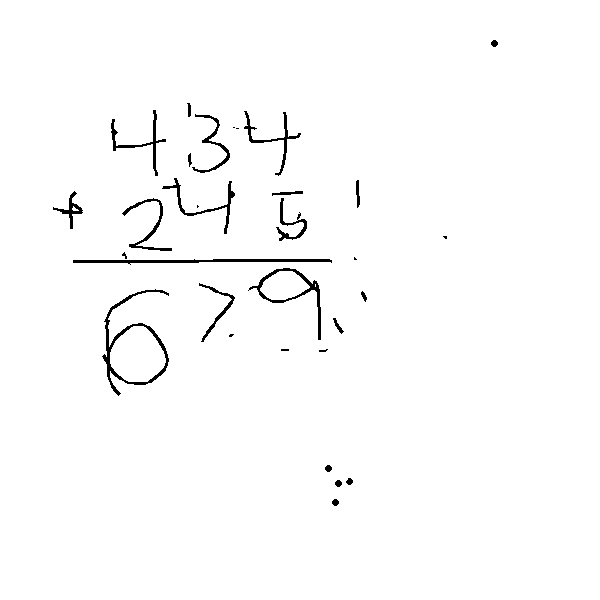 434
+ 245
679